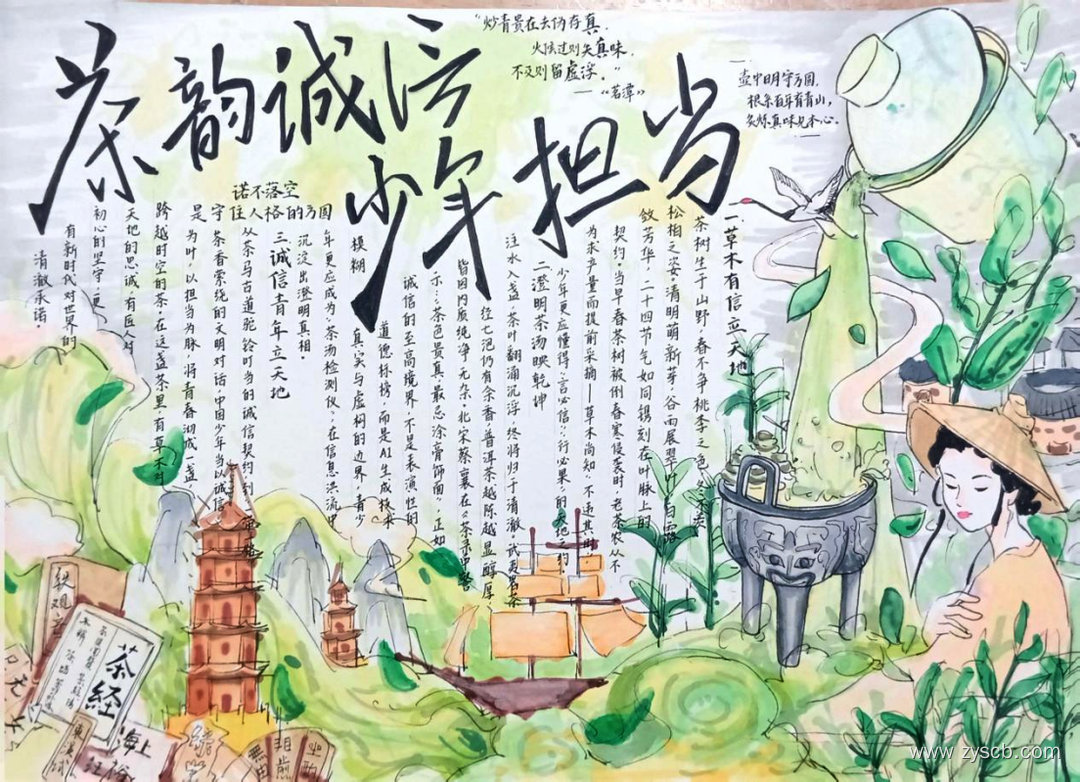 茶韵诚信
少年担当
“炒青贵在去伪存真，
火候过则失真味，
不及则留虚浮。”
——《茗谭》
壶中日月守方圆，
根系百年青山，
炙炒真味见本心。
一草木有信立天地
茶树生于山野，春不争桃李之色，冬
松柏之姿，清明萌新芽，谷雨展翠叶，白露
敛芳华，二十四节气如同镌刻在叶脉上的
契约，当早春茶树被倒春寒侵袭时，老茶农从不
为求产量而提前采摘——草木尚知，不违其时
少年更应懂得：言必信，行必果的天地之约
二澄明茶汤映乾坤
注水入盏，茶叶翻涌沉浮，终将归于清澈，武夷岩茶
经七泡仍有余香，普洱茶越陈越显醇厚，
皆因内质纯净无杂。北宋蔡襄在《茶录》中警
示：茶色贵真，最忌涂膏饰面，正如
诚信的至高境界，不是表演性的
道德标榜，而是AI生成技术
真实与虚构的边界，青少
模糊
年更应成为“茶汤检测仪”，在信息洪流中
沉淀出澄明真相。
三诚信青年立天地
从茶马古道驼铃时当的诚信契约
茶香萦绕的文明对话，中国少年当以诚信
诺不落空
守住人格的方圆
是为叶，以担当为脉，将青春湖成一盏
跨越时空的茶，在这盏茶里，有草木对
天地的思诚，有匠人对
初心的坚守，更
有新时代对世界的
清澈承诺。
茶經
海上
www.zyscb.com